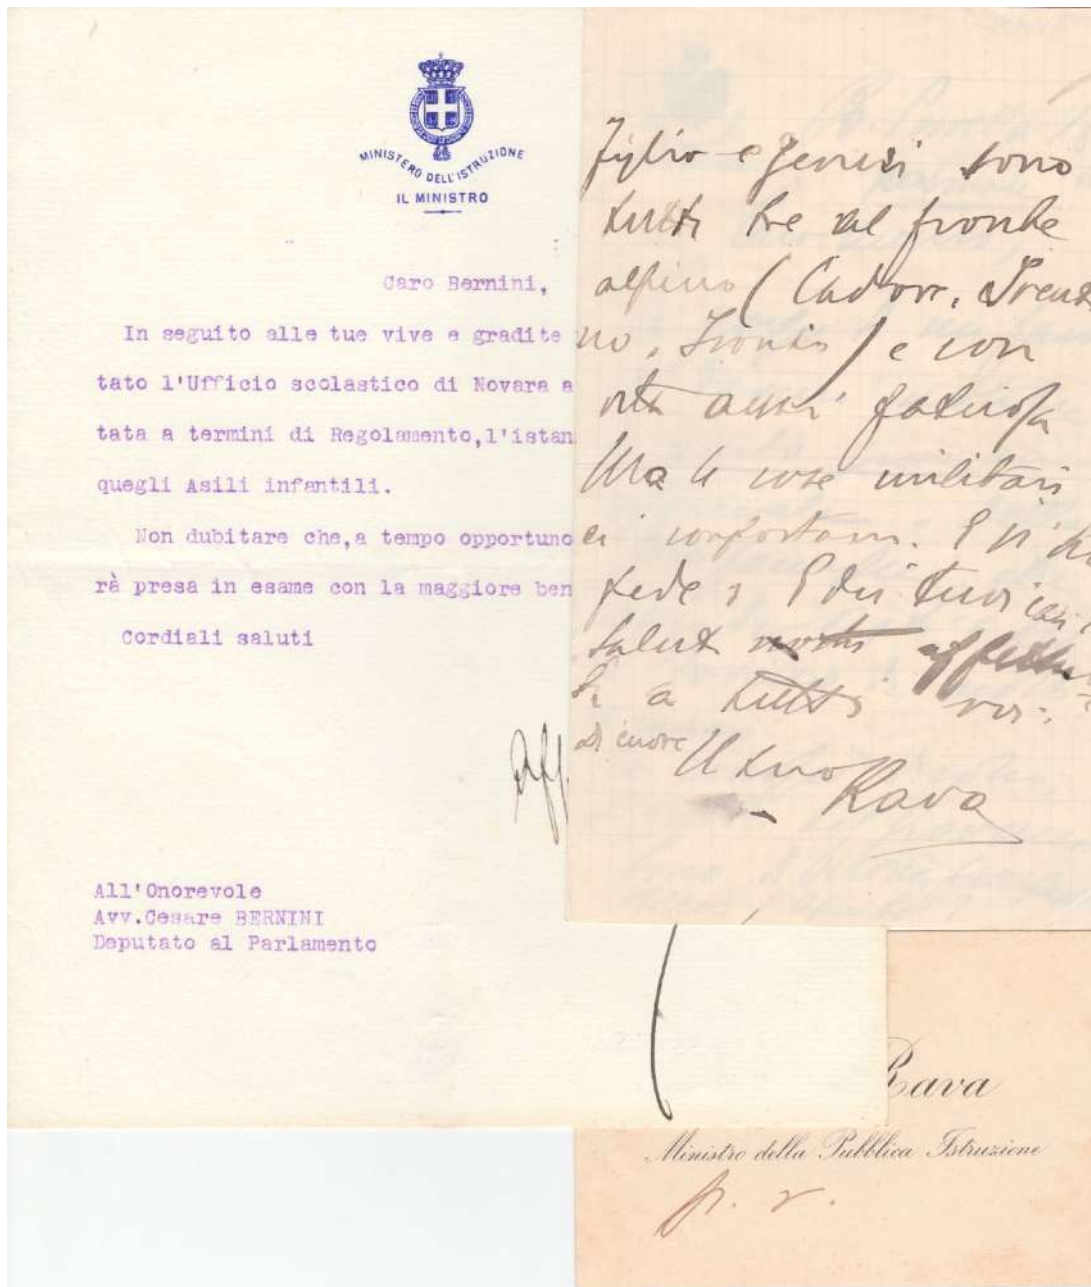 MINISTERO DELL'ISTRUZIONE
IL MINISTRO
Caro Bernini,
In seguito alle tue vive e gradite
tato l'Ufficio scolastico di Novara a
tata a termini di Regolamento,l'istan
quegli Asili infantili.
Non dubitare che,a tempo opportuno
rà presa in esame con la maggiore ben
Cordiali saluti
Aff.
All'Onorevole
Avv.Cesare BERNINI
Deputato al Parlamento
Figlio e generi sono
tutti tre al fronte
alpino (Cadore, Trent
no, ) e con
vita assai faticosa
Ma le cose militari
ci confortano. E si ha
fede
saluti
a tutti voi.
di cuore Il tuo
Rava
Rava
Ministro della Pubblica Istruzione
p. r.